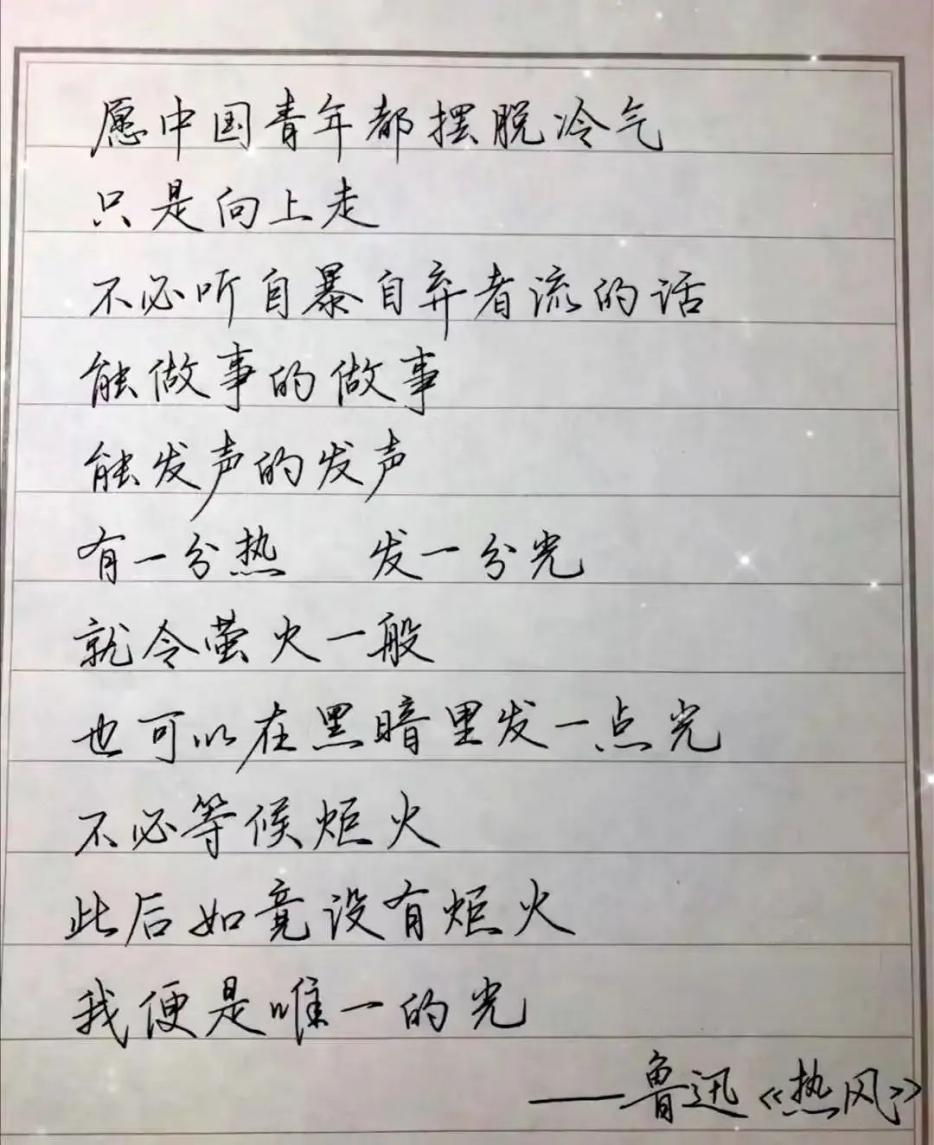 愿中国青年都摆脱冷气
只是向上走
不必听自暴自弃者流的话
能做事的做事
能发声的发声
有一分热 发一分光
就令萤火一般
也可以在黑暗里发一点光
不必等候炬火
此后如竟没有炬火
我便是唯一的光
——鲁迅《热风》